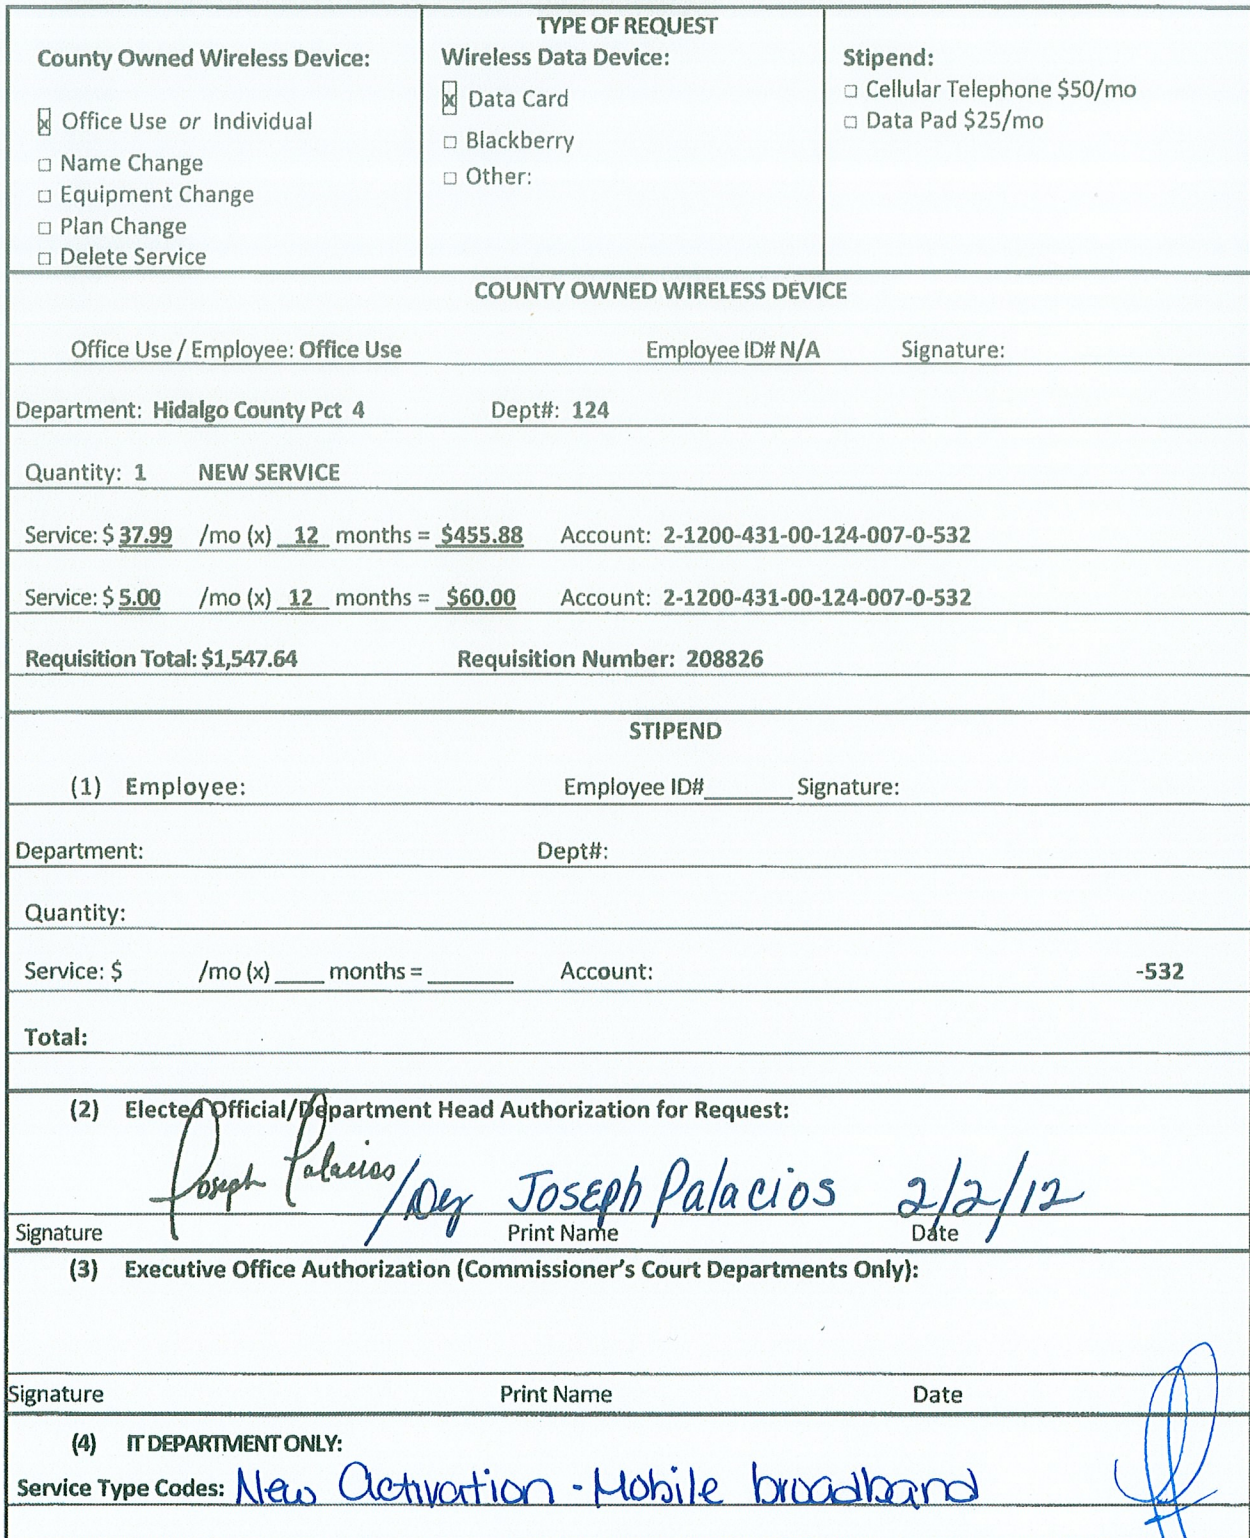 TYPE OF REQUEST
County Owned Wireless Device: Wireless Data Device: Stipend:
x Office Use or Individual x Data Card □ Cellular Telephone $50/mo
□ Name Change □ Blackberry □ Data Pad $25/mo
□ Equipment Change □ Other:
□ Plan Change
□ Delete Service
COUNTY OWNED WIRELESS DEVICE
Office Use / Employee: Office Use Employee ID# N/A Signature:
Department: Hidalgo County Pct 4 Dept#: 124
Quantity: 1 NEW SERVICE
Service: $ 37.99 /mo (x) 12 months = $455.88 Account: 2-1200-431-00-124-007-0-532
Service: $ 5.00 /mo (x) 12 months = $60.00 Account: 2-1200-431-00-124-007-0-532
Requisition Total: $1,547.64 Requisition Number: 208826
STIPEND
(1) Employee: Employee ID#_______ Signature:
Department: Dept#:
Quantity:
Service: $ /mo (x) ____ months = _______ Account: -532
Total:
(2) Elected Official/Department Head Authorization for Request:
Joseph Palacios Joseph Palacios 2/2/12
Signature Print Name Date
(3) Executive Office Authorization (Commissioner's Court Departments Only):
Signature Print Name Date
(4) IT DEPARTMENT ONLY:
Service Type Codes: New Activation - Mobile broadband